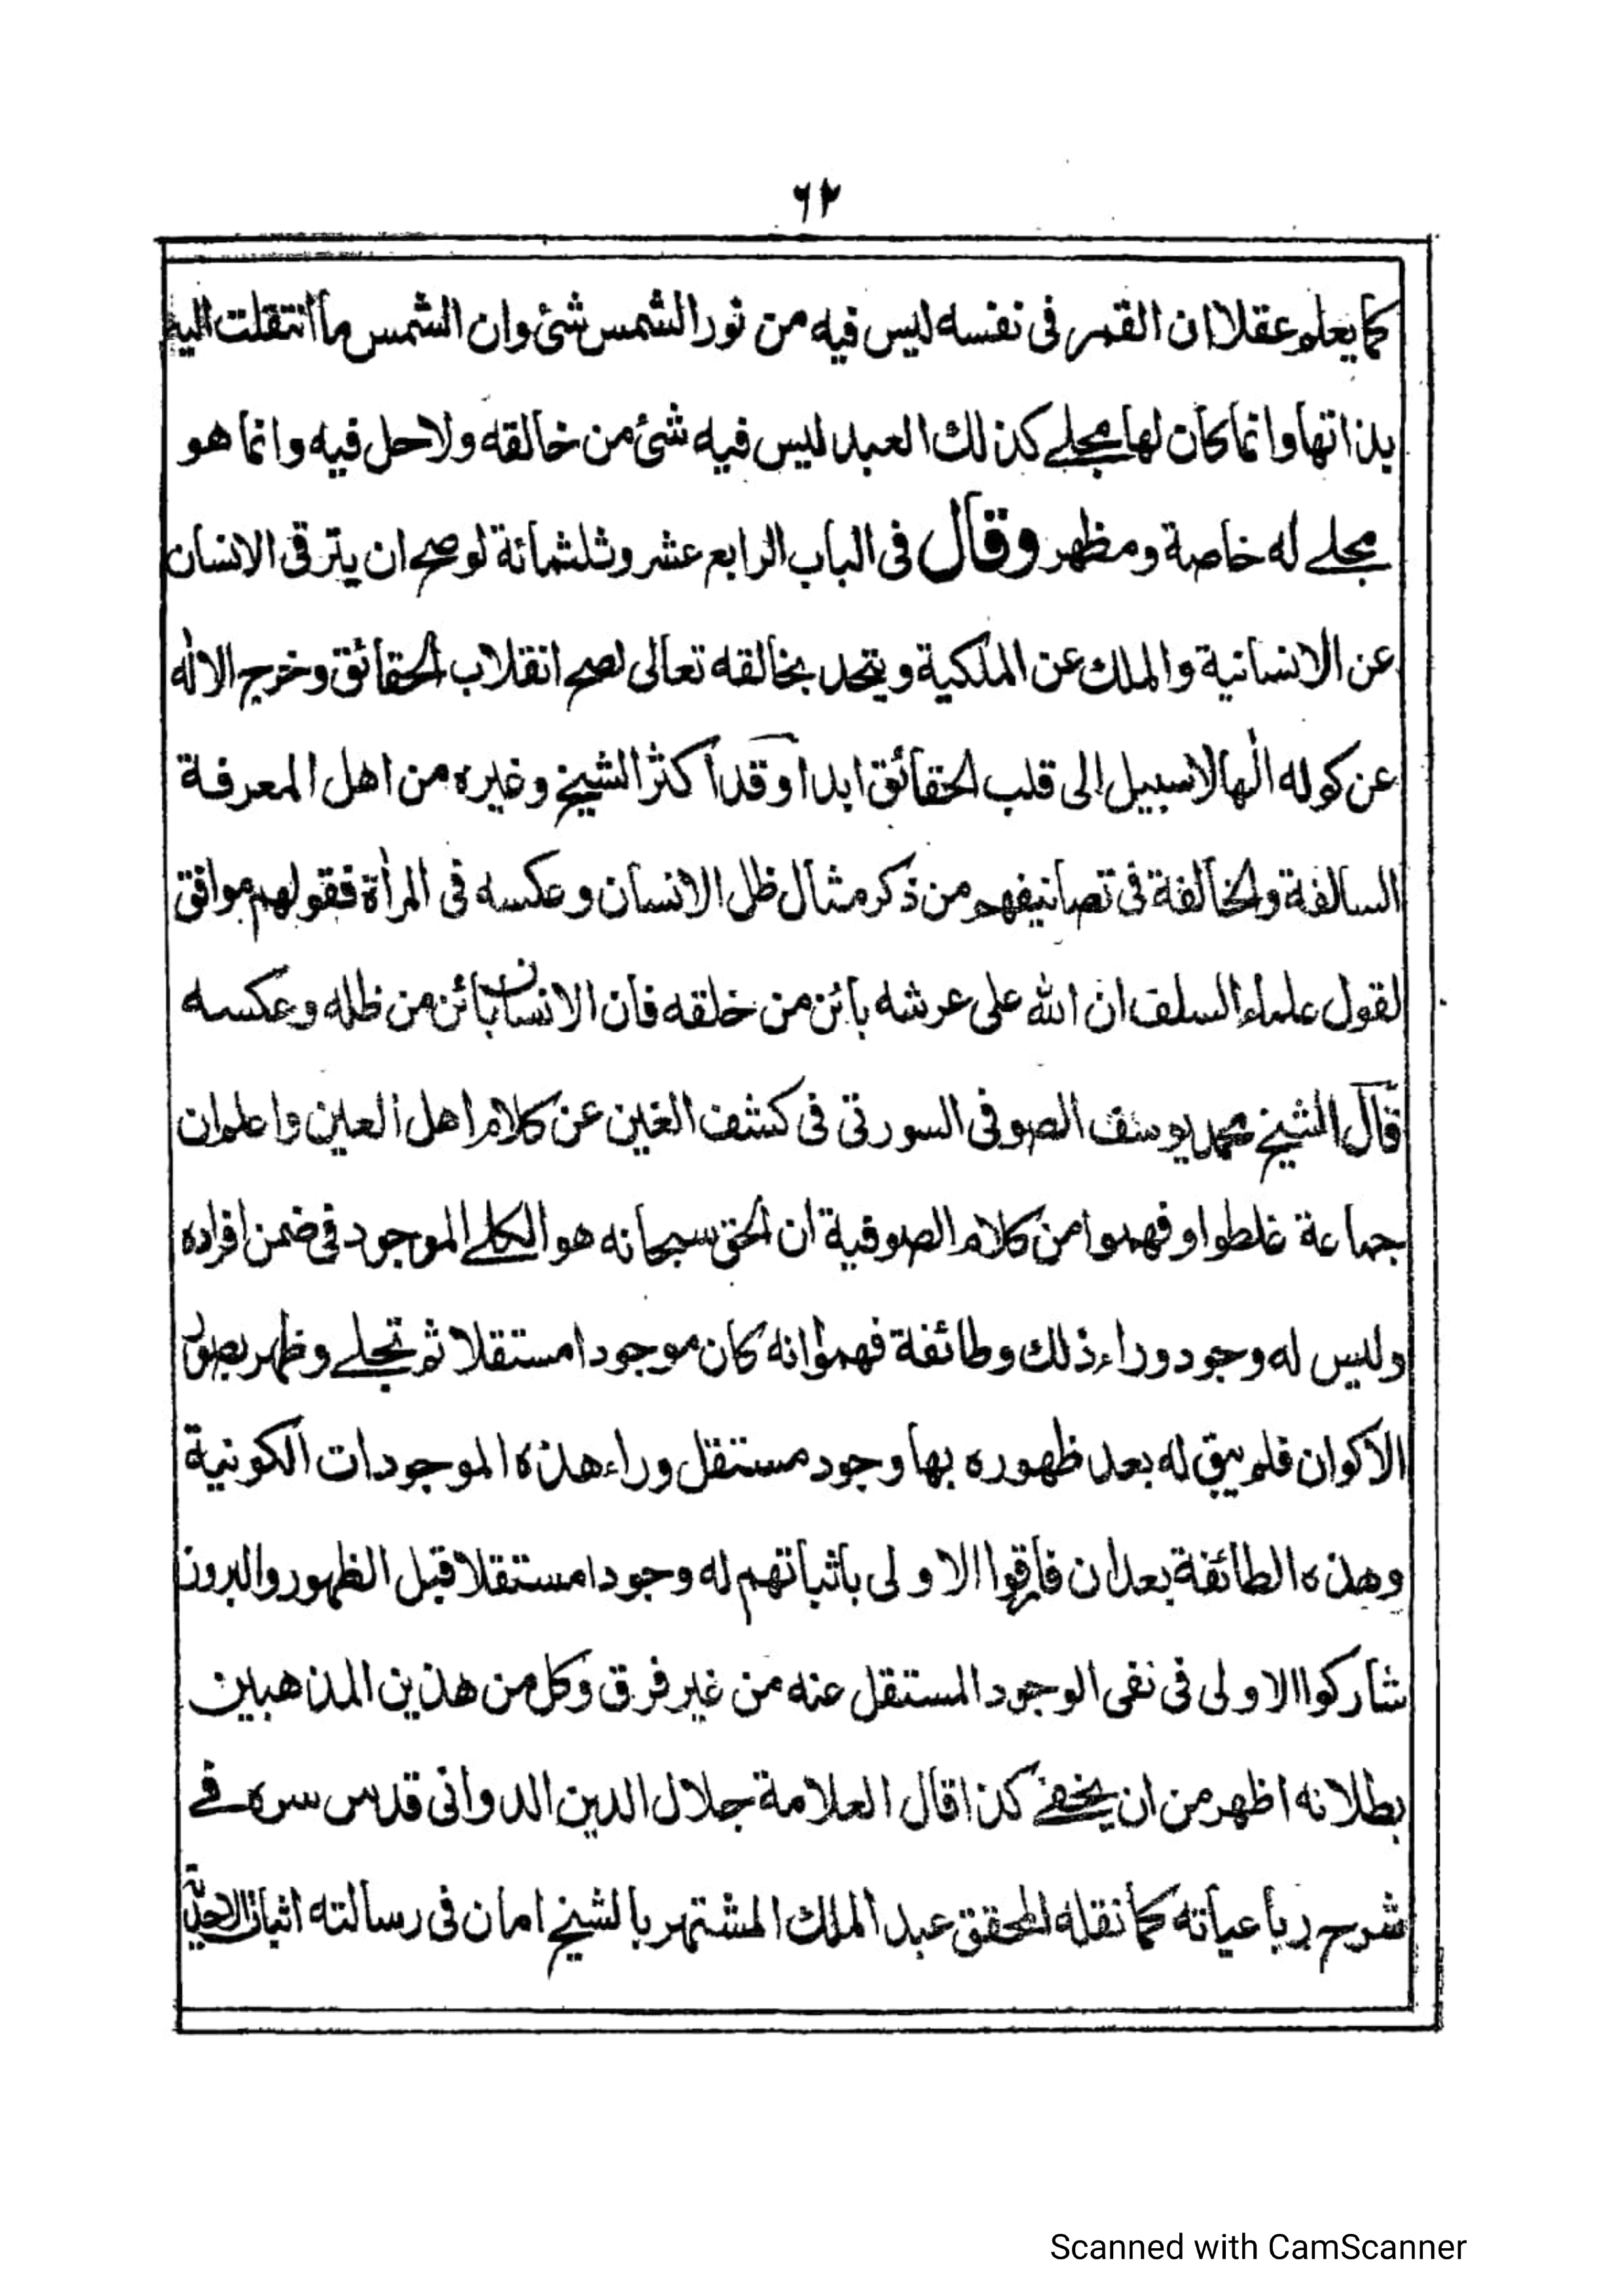 ٦٢
كما يعلم عقلا ان القمر فى نفسه ليس فيه من نور الشمس شئ وان الشمس ما انتقلت اليه
بذاتها وانما كان لها مجلے كذلك العبد ليس فيه شئ من خالقه ولا حل فيه وانما هو
مجلے له خاصة ومظهر وقال فى الباب الرابع عشر وثلثمائة لو صح ان يترقى الانسان
عن الانسانية والملك عن الملكية ويتحد بخالقه تعالى لصح انقلاب الحقائق وخرج الاله
عن كوله الٰها لا سبيل الى قلب الحقائق ابدا وقد اكثر الشيخ وغيره من اهل المعرفة
السالفة والخالفة فى تصانيفهم من ذكر مثال ظل الانسان وعكسه فى المرأة فقولهم موافق
لقول علماء السلف ان الله على عرشه بائن من خلقه فان الانسان بائن من ظله وعكسه
قال الشيخ محمد يوسف الصوفى السورتى فى كشف الغين عن كلام اهل العين واعلم ان
جماعة غلطوا وفهموا من كلام الصوفية ان الحق سبحانه هو الكلے الموجود فى ضمن افراده
وليس له وجود وراء ذلك وطائفة فهموا انه كان موجودا مستقلا ثم تجلے وظهر بصور
الاكوان فلم يبق له بعد ظهوره بها وجود مستقل وراء هذه الموجودات الكونية
وهذه الطائفة بعد ان فارقوا الاولى باثباتهم له وجودا مستقلا قبل الظهور والبروز
شاركوا الاولى فى نفى الوجود المستقل عنه من غير فرق وكل من هذين المذهبين
بطلانه اظهر من ان يخفے كذا قال العلامة جلال الدين الدوانى قدس سره فے
شرح رباعياته كما نقله المحقق عبد الملك المشتهر بالشيخ امان فى رسالته اثبات الاحدية
Scanned with CamScanner